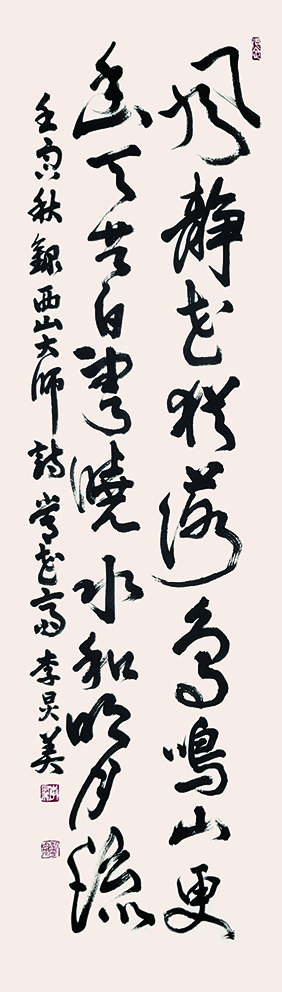 風靜花猶落鳥鳴山更
幽天共白雲曉水和明月流
壬寅秋錄西山大師詩 花 李炅美